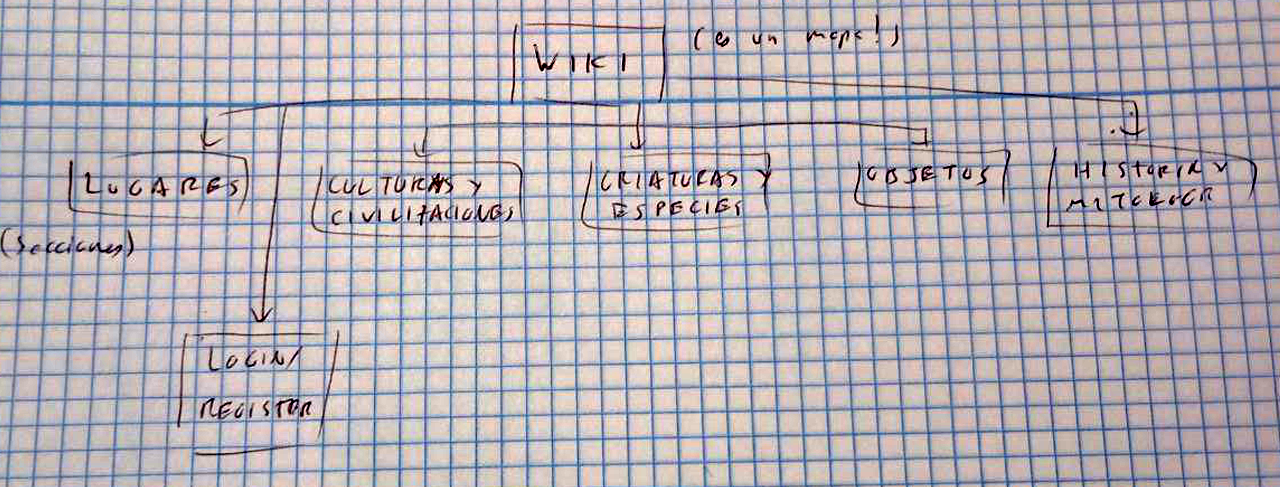 WIKI
(es un mapa!)
LUGARES
CULTURAS Y
CIVILIZACIONES
CRIATURAS Y
ESPECIES
OBJETOS
HISTORIA Y
(Secciones)
LOGIN/
REGISTOR